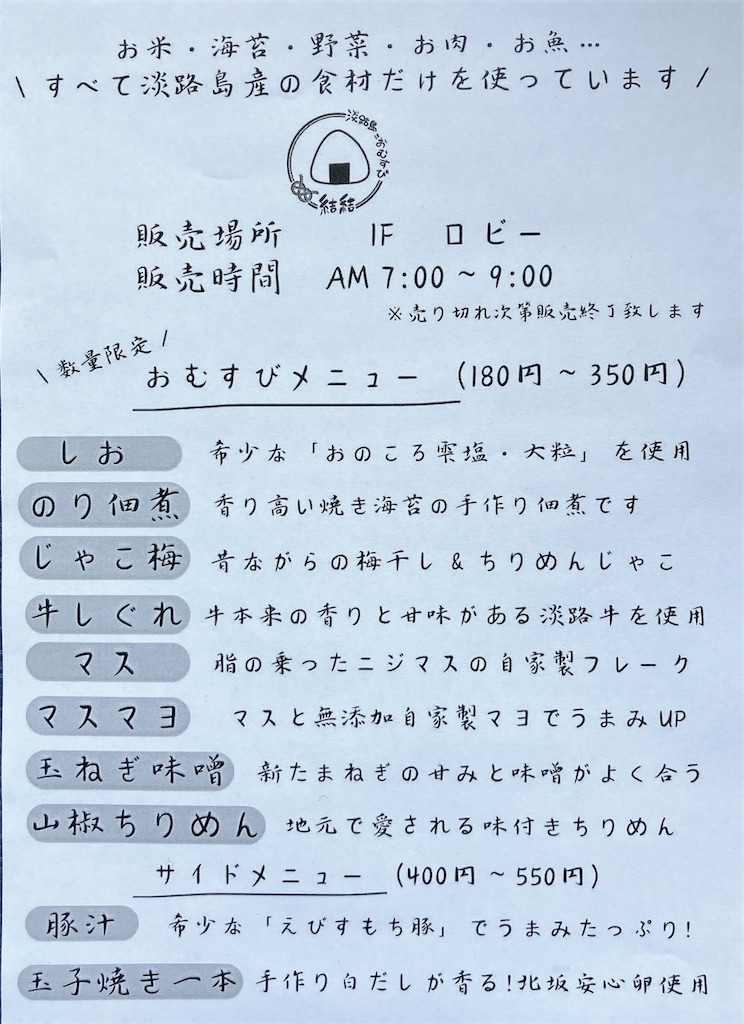 お米・海苔・野菜・お肉・お魚…
\ すべて淡路島産の食材だけを使っています /
淡路島のおむすび
結結
販売場所 1F ロビー
販売時間 AM 7:00 ~ 9:00
※売り切れ次第販売終了致します
\ 数量限定 /
おむすびメニュー (180円 ~ 350円)
しお 希少な「おのころ雫塩・大粒」を使用
のり佃煮 香り高い焼き海苔の手作り佃煮です
じゃこ梅 昔ながらの梅干し&ちりめんじゃこ
牛しぐれ 牛本来の香りと甘味がある淡路牛を使用
マス 脂の乗ったニジマスの自家製フレーク
マスマヨ マスと無添加自家製マヨでうまみUP
玉ねぎ味噌 新たまねぎの甘みと味噌がよく合う
山椒ちりめん 地元で愛される味付きちりめん
サイドメニュー (400円 ~ 550円)
豚汁 希少な「えびすもち豚」でうまみたっぷり!
玉子焼き一本 手作り白だしが香る!北坂安心卵使用